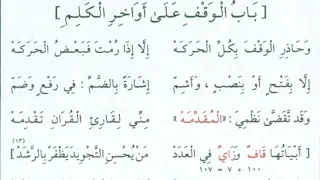 [ بَابُ الْوَقْفِ عَلَىٰ أَوَاخِرِ الْكَلِمِ ]
وَحَاذِرِ الْوَقْفَ بِكُلِّ الْحَرَكَهْ إِلَّا إِذَا رُمْتَ فَبَعْضُ الْحَرَكَهْ
إِلَّا بِفَتْحٍ أَوْ بِنَصْبٍ ، وَأَشِمّْ إِشَارَةً بِالضَّمِّ : فِي رَفْعٍ وَضَمّْ
وَقَد تَّقَضَّىٰ نَظْمِيَ : «الْمُقَدِّمَهْ» مِنِّي لِقَارِئِ الْقُرَانِ تَقْدِمَهْ
[ أَبْيَاتُهَا قَافٌ وَزَايٌ فِي الْعَدَدْ مَنْ يُحْسِنِ التَّجْوِيدَ يَظْفَرْ بِالرَّشَدْ ] (١٣)
١٠٠ + ٧ = ١٠٧